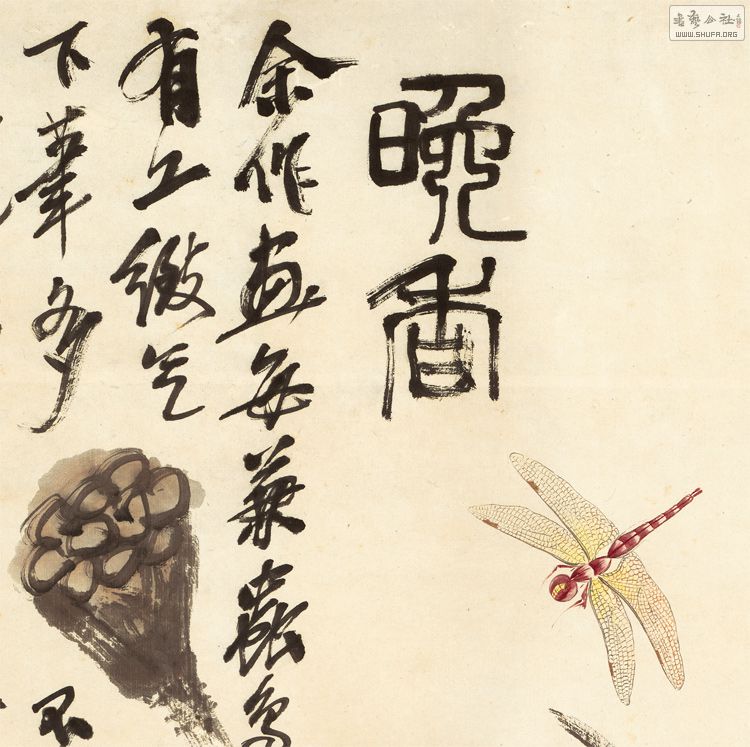 晚香
余作畫每兼蟲鳥
有工緻气
下筆多
不
書藝公社
WWW.SHUFA.ORG